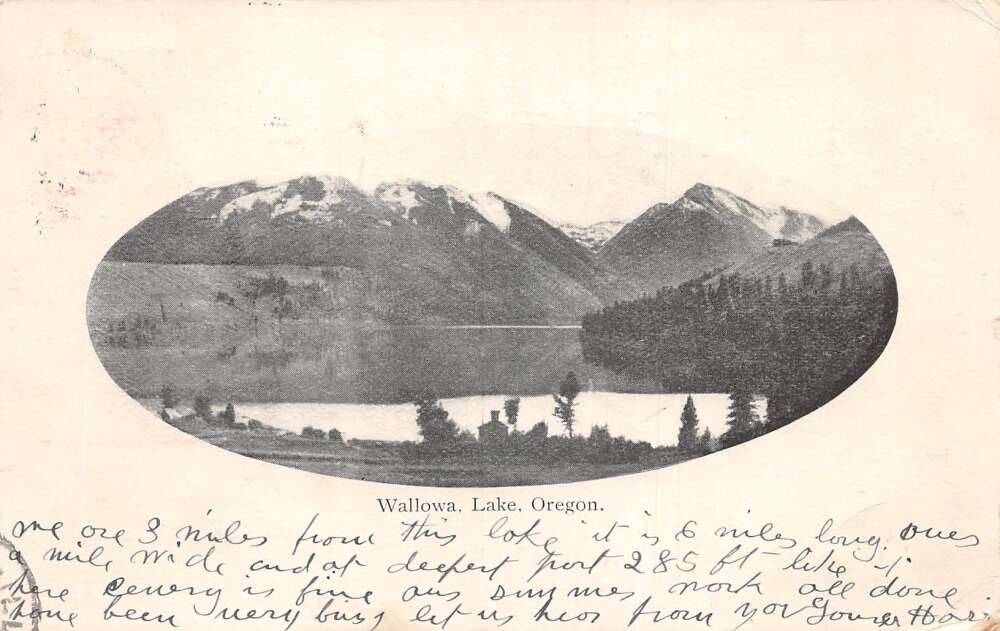 Wallowa, Lake, Oregon.
we are 3 miles from this lake it is 6 miles long. over
a mile wide and at deepest part 285 ft like it
here cenery is fine our summes work all done
have been very busy let us hear from you